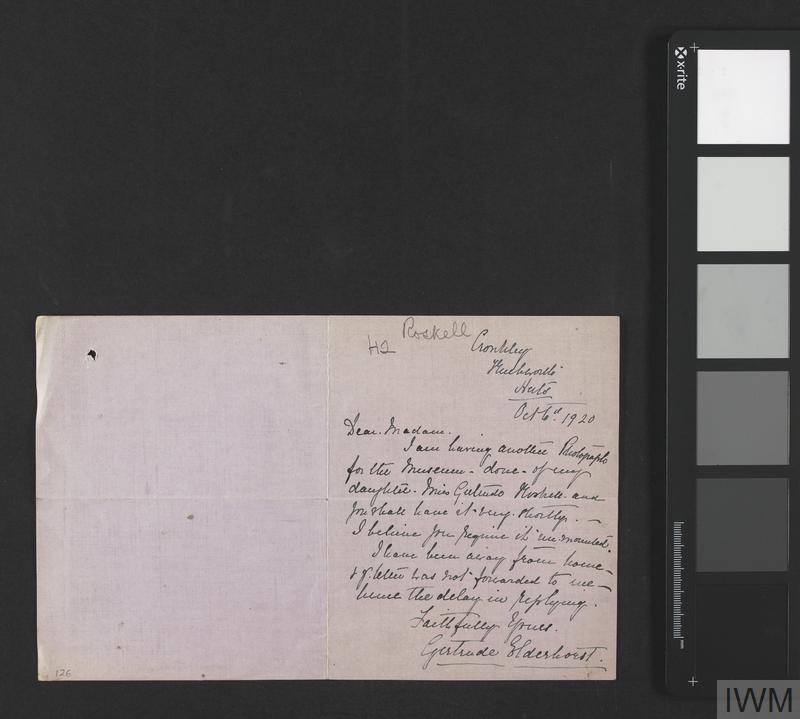 x-rite
Roskell
42
Cronkley
Knebworth
Herts
Oct 6th 1920
Dear Madam.
I am having another Photograph
for the Museum - done - of my
daughter - Miss Gertrude Roskell - and
you shall have it very shortly. —
I believe you require it un-mounted.
I have been away from home -
& yr. letter was not forwarded to me -
hence the delay in replying.
Faithfully Yours.
Gertrude Elderhorst.
126
IWM